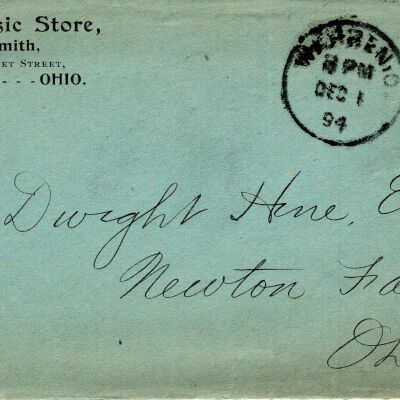 sic Store,
mith,
ET STREET,
- - - - OHIO.
WARREN, O
PM
DEC 1
94
Dwight Hine, E
Newton Fa
Oh